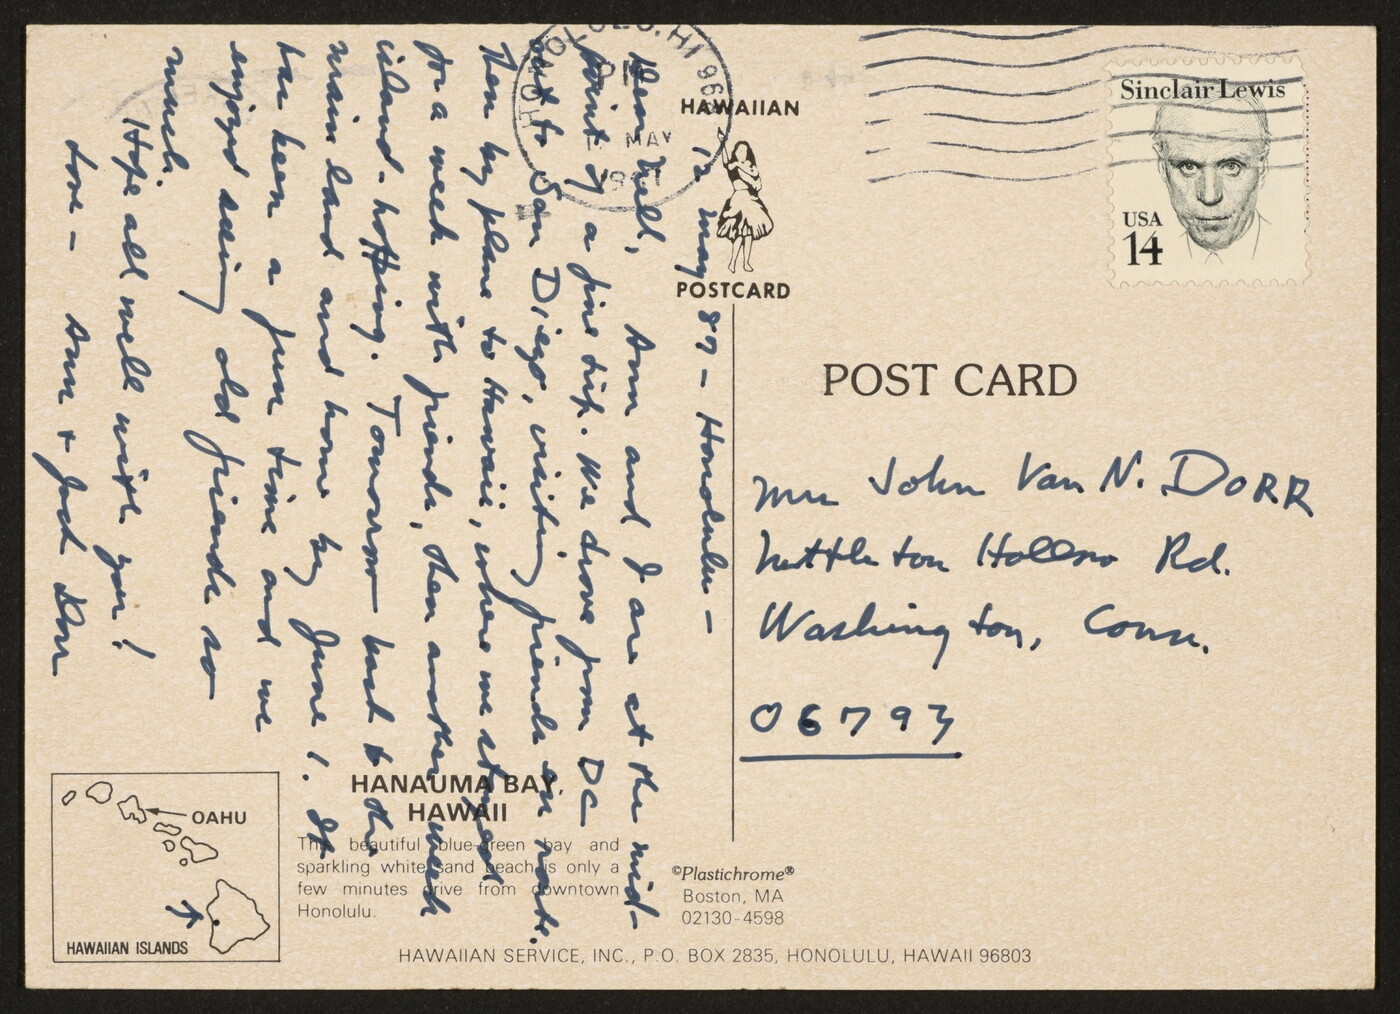 HONOLULU, HI 968
PM
MAY
HAWAIIAN
POSTCARD
Sinclair Lewis
USA
14
POST CARD
Mrs John Van N. DORR
Nettleton Hollow Rd.
Washington, Conn.
06793
12 May 87 - Honolulu -
Dear Nell, Ann and I are at the mid-
point of a fine trip. We drove from DC
out to San Diego, visiting friends en route.
Then by plane to Hawaii, where we stayed
for a week with friends, then another week
island-hopping. Tomorrow back to the
mainland and home by June 1. It
has been a fun time and we
enjoyed seeing old friends so
much.
Hope all well with you!
Love - Ann + Jack Dorr
OAHU
HAWAIIAN ISLANDS
HANAUMA BAY
HAWAII
This beautiful blue-green bay and
sparkling white sand beach is only a
few minutes drive from downtown
Honolulu.
©Plastichrome®
Boston, MA
02130-4598
HAWAIIAN SERVICE, INC., P.O. BOX 2835, HONOLULU, HAWAII 96803